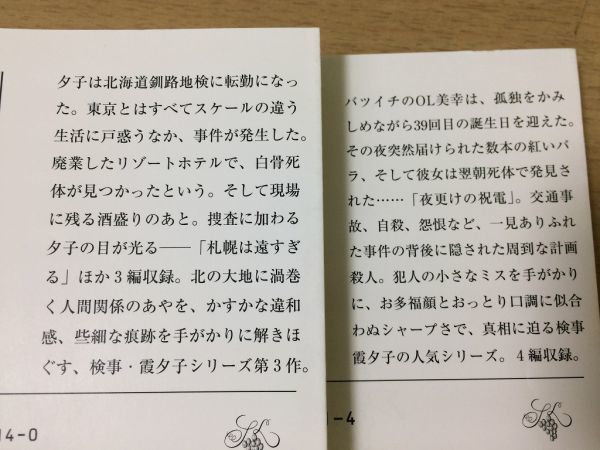 夕子は北海道釧路地検に転勤になっ
た。東京とはすべてスケールの違う
生活に戸惑うなか、事件が発生した。
廃業したリゾートホテルで、白骨死
体が見つかったという。そして現場
に残る酒盛りのあと。捜査に加わる
夕子の目が光る──「札幌は遠すぎ
る」ほか3編収録。北の大地に渦巻
く人間関係のあやを、かすかな違和
感、些細な痕跡を手がかりに解きほ
ぐす、検事・霞夕子シリーズ第3作。
14-0
バツイチのOL美幸は、孤独をかみ
しめながら39回目の誕生日を迎えた。
その夜突然届けられた数本の紅いバ
ラ、そして彼女は翌朝死体で発見さ
れた……「夜更けの祝電」。交通事
故、自殺、怨恨など、一見ありふれ
た事件の背後に隠された周到な計画
殺人。犯人の小さなミスを手がかり
に、お多福顔とおっとり口調に似合
わぬシャープさで、真相に迫る検事
霞夕子の人気シリーズ。4編収録。
1-4